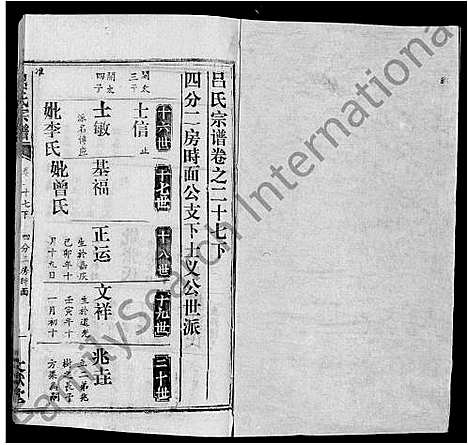 呂氏宗谱卷之二十七下
四分二房時面公支下士义公世派
十六世
十七世
十八世
十九世
二十世
開太
三子
士信 止
開太
四子
士敏
派名傳
妣李氏
基福
妣曾氏
正运
生於嘉庆
己卯年十
月十九日
文祥
生於道光
壬寅年十
一月初十
兆垚
立二弟兆
樹之長子
呂氏宗譜
卷二十七下
四分二房時面
FamilySearch International